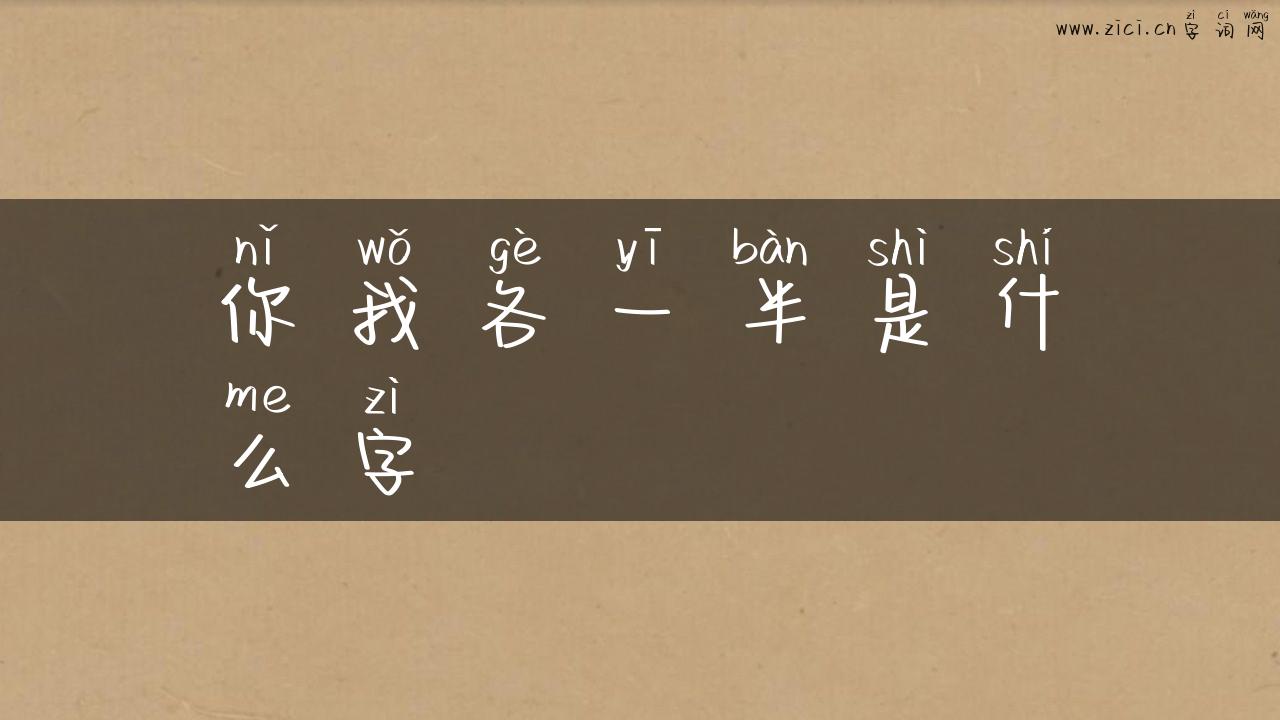 zì cí wǎng
www.zici.cn 字词网
nǐ wǒ gè yī bàn shì shí
你我各一半是什
me zì
么字